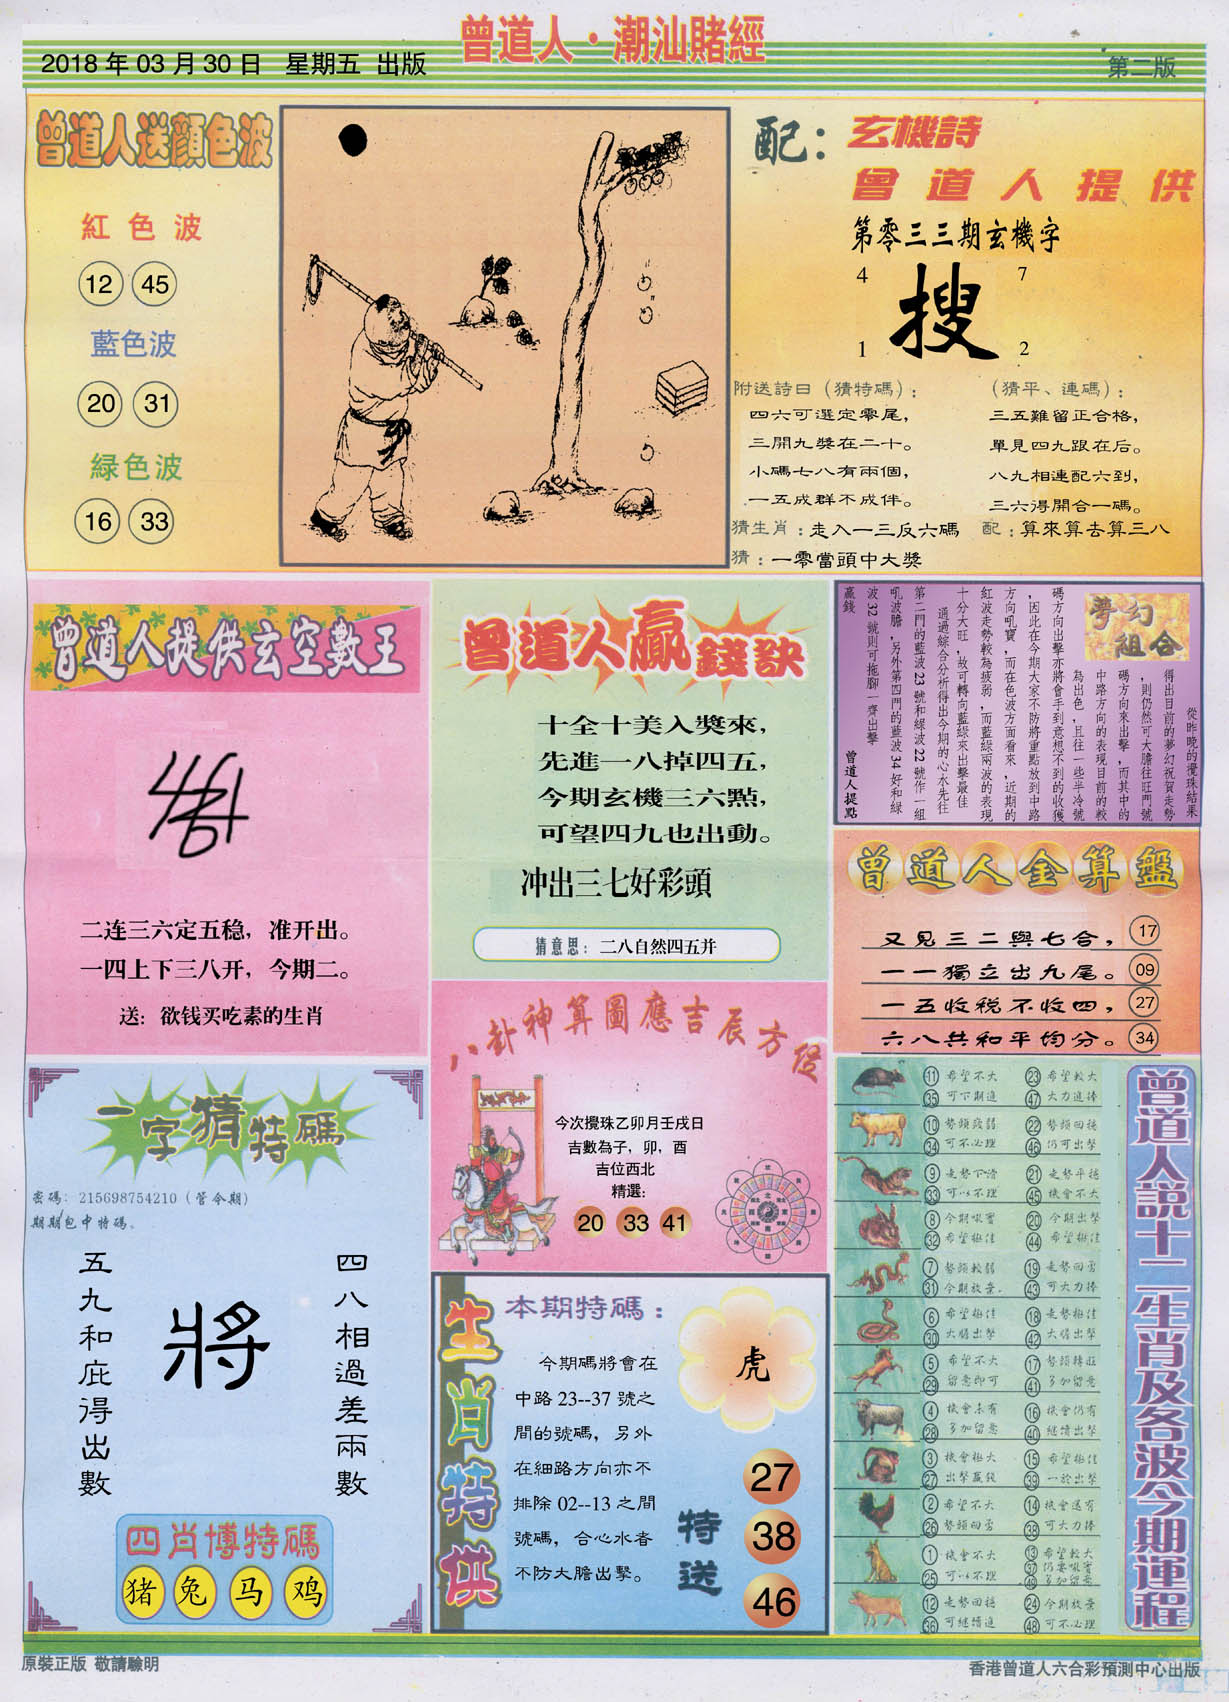 曾道人·潮汕賭經
2018 年 03 月 30 日 星期五 出版
第二版
曾道人送顔色波
紅色波
12 45
藍色波
20 31
緑色波
16 33
配：玄機詩
曾道人提供
第零三三期玄機字
4 7
搜
1 2
附送詩曰（猜特碼）：
四六可選定零尾，
三開九獎在二十。
小碼七八有兩個，
一五成群不成伴。
（猜平、連碼）：
三五難留正合格，
單見四九跟在后。
八九相連配六到，
三六得開合一碼。
猜生肖：走入一三反六碼
配：算來算去算三八
猜：一零當頭中大獎
曾道人提供玄空數王
二连三六定五稳，准开出。
一四上下三八开，今期二。
送：欲钱买吃素的生肖
曾道人贏錢訣
十全十美入獎來，
先進一八掉四五，
今期玄機三六點，
可望四九也出動。
冲出三七好彩頭
猜意思：二八自然四五并
夢幻
組合
從昨晚的攪珠結果
得出目前的夢幻祝賀走勢
，則仍然可大膽往旺門號
碼方向來出擊，而其中的
中路方向的表現目前的較
為出色，且往一些半冷號
碼方向出擊亦將會手到意想不到的收獲
，因此在今期大家不防將重點放到中路
方向吼寶，而在色波方面看來，近期的
紅波走勢較為疲弱，而藍綠兩波的表現
十分大旺，故可轉向藍綠來出擊最佳
通過綜合分析得出今期的心水先往
第二門的藍波 23 號和綠波 22 號作一組
吼波膽，另外第四門的藍波 34 好和綠
波 32 號則可拖腳一齊出擊
贏錢
曾道人提點
曾道人金算盤
又見三二與七合， 17
一一獨立出九尾。 09
一五收税不收四， 27
六八共和平均分。 34
八卦神算圖應吉辰方位
今次攪珠乙卯月壬戌日
吉數為子，卯，酉
吉位西北
精選：
20 33 41
一字猜特碼
密碼：215698754210（管令期）
期期包中特碼。
四八相過差兩數
將
五九和庇得出數
四肖博特碼
猪 兔 马 鸡
生肖特供
本期特碼：
今期碼將會在
中路 23--37 號之
間的號碼，另外
在細路方向亦不
排除 02--13 之間
號碼，合心水者
不防大膽出擊。
虎
特送
27
38
46
曾道人説十二生肖及各波今期運程
11 希望不大 23 希望較大
35 可下期進 47 大力進捧
10 勢頭疲弱 22 勢頭回穩
34 可不必理 46 仍可出擊
9 走勢下滑 21 走勢平穩
33 可以不理 45 機會不大
8 今期吼寶 20 今期出擊
32 希望極佳 44 希望極佳
7 勢頭較弱 19 走勢回勇
31 今期放棄 43 可大力捧
6 希望極佳 18 走勢極佳
30 大膽出擊 42 大膽出擊
5 希望不大 17 勢頭轉旺
29 留意即可 41 多加留意
4 機會未有 16 機會仍有
28 多加留意 40 繼續出擊
3 機會極大 15 希望極佳
27 出擊贏錢 39 一於出擊
2 希望不大 14 機會還有
26 勢頭回勇 38 可大力捧
1 機會不大 13 希望較大
25 可以不理 37 仍要吼寶
49 多加留意
12 走勢回穩 24 今期放棄
36 可繼續進 48 可不必理
原裝正版 敬請驗明
香港曾道人六合彩預測中心出版